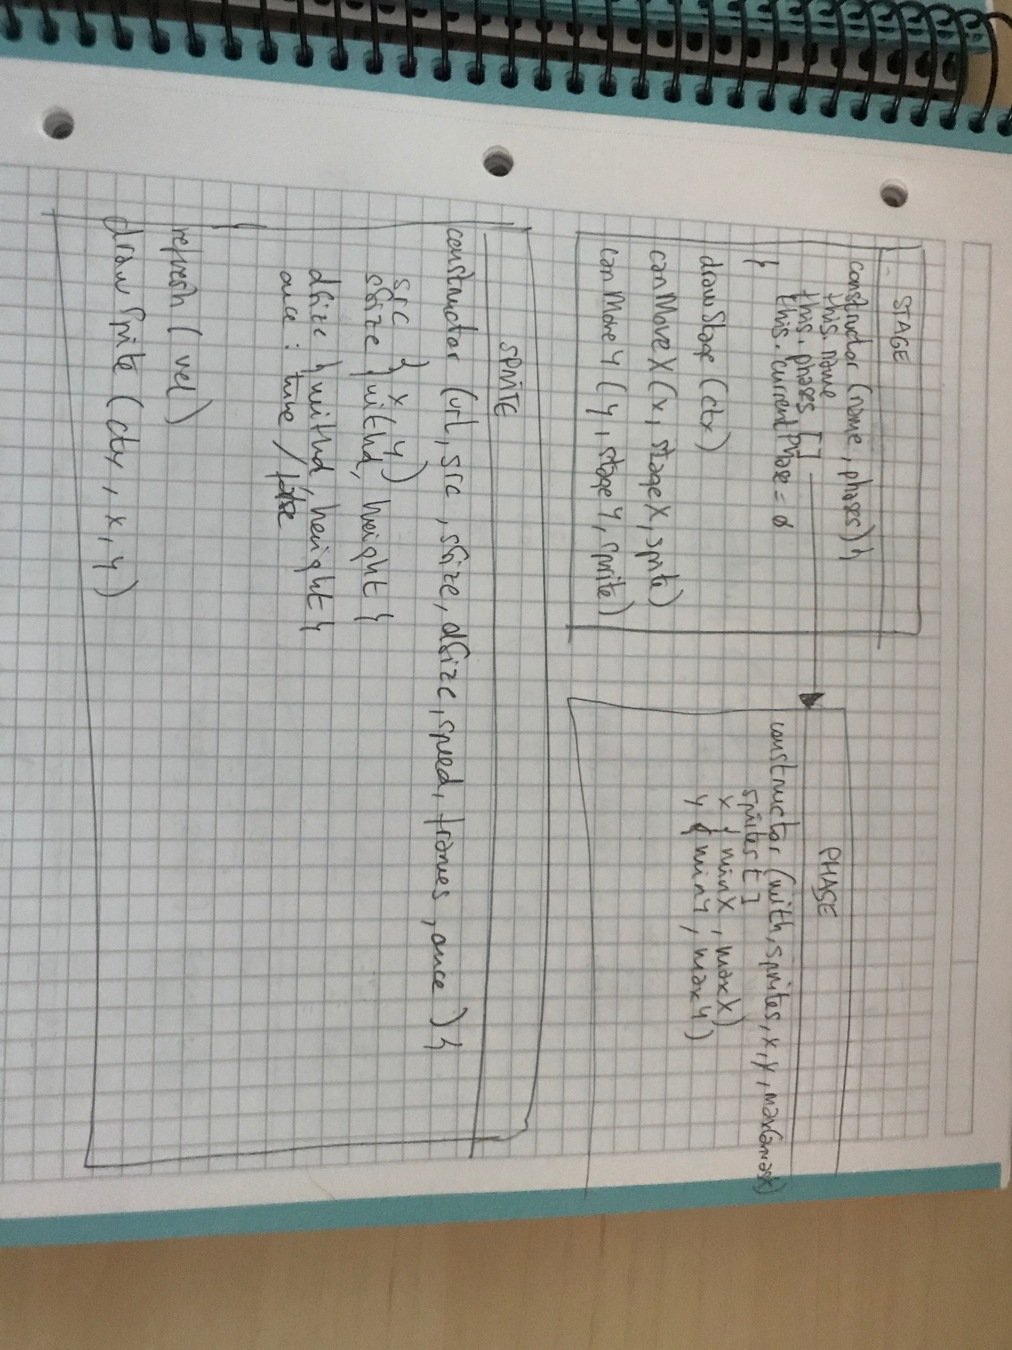 STAGE
constructor (name, phases) {
this.name
this.phases []
this.currentPhase = 0
}
drawStage (ctx)
canMoveX (x, stageX, sprite)
canMoveY (y, stageY, sprite)
PHASE
constructor (with, sprites, x, y,
sprites []
x { minX, maxX }
y { minY, maxY }
SPRITE
constructor (url, src, sSize, dSize, speed, frames, once) {
src { x, y }
sSize { withd, height }
dSize { withd, height }
once : true / false
}
refresh (vel)
draw Sprite (ctx, x, y)